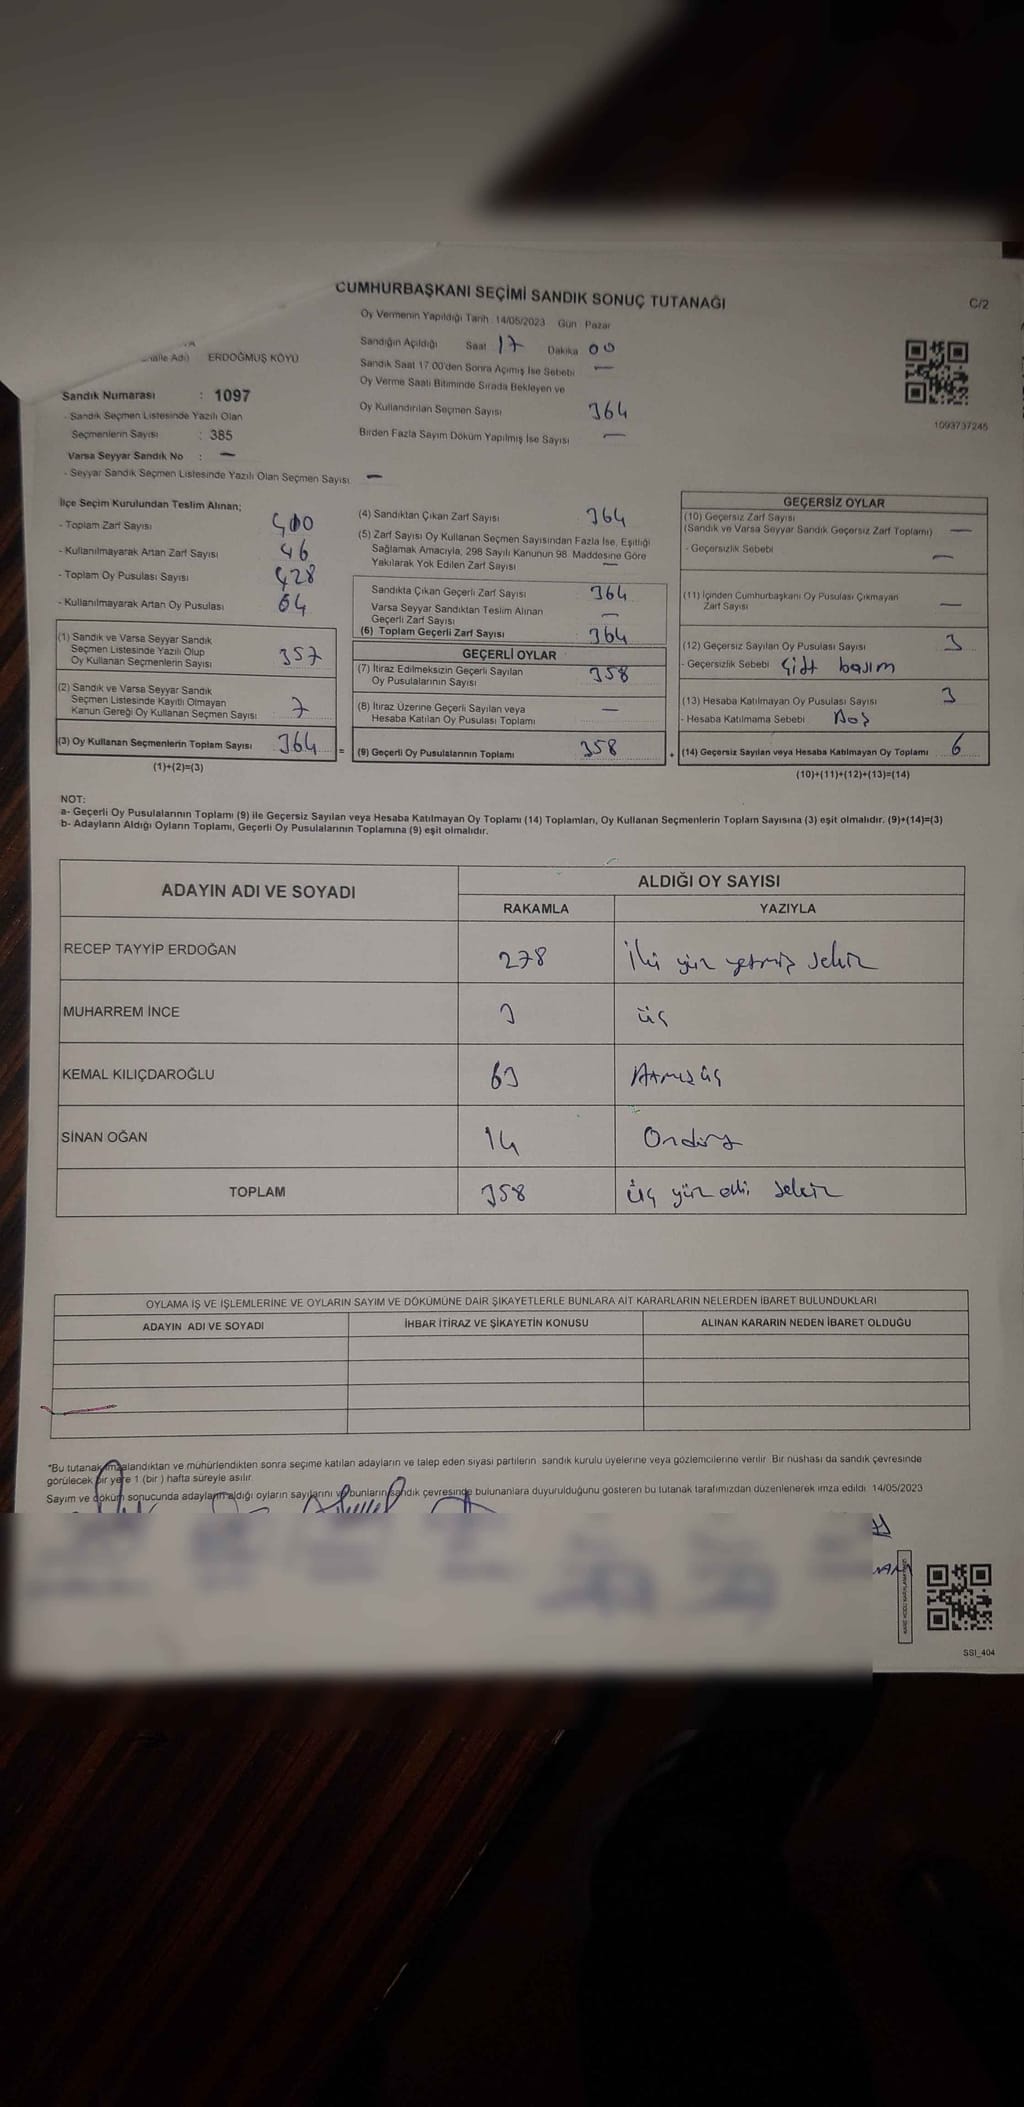 CUMHURBAŞKANI SEÇİMİ SANDIK SONUÇ TUTANAĞI
C/2
Oy Vermenin Yapıldığı Tarih : 14/05/2023 Gün : Pazar
Adı) ERDOĞMUŞ KÖYÜ
Sandık Numarası : 1097
- Sandık Seçmen Listesinde Yazılı Olan
Seçmenlerin Sayısı : 385
Varsa Seyyar Sandık No : —
- Seyyar Sandık Seçmen Listesinde Yazılı Olan Seçmen Sayısı —
Sandığın Açıldığı Saat 17 Dakika 00
Sandık Saat 17:00'den Sonra Açımış İse Sebebi —
Oy Verme Saati Bitiminde Sırada Bekleyen ve
Oy Kullandırılan Seçmen Sayısı 364
Birden Fazla Sayım Döküm Yapılmış İse Sayısı —
1093737245
İlçe Seçim Kurulundan Teslim Alınan;
- Toplam Zarf Sayısı 400
- Kullanılmayarak Artan Zarf Sayısı 46
- Toplam Oy Pusulası Sayısı 428
- Kullanılmayarak Artan Oy Pusulası 64
(1) Sandık ve Varsa Seyyar Sandık
Seçmen Listesinde Yazılı Olup
Oy Kullanan Seçmenlerin Sayısı 357
(2) Sandık ve Varsa Seyyar Sandık
Seçmen Listesinde Kayıtlı Olmayan
Kanun Gereği Oy Kullanan Seçmen Sayısı 7
(3) Oy Kullanan Seçmenlerin Toplam Sayısı 364
(1)+(2)=(3)
(4) Sandıktan Çıkan Zarf Sayısı 364
(5) Zarf Sayısı Oy Kullanan Seçmen Sayısından Fazla İse, Eşitliği
Sağlamak Amacıyla, 298 Sayılı Kanunun 98. Maddesine Göre
Yakılarak Yok Edilen Zarf Sayısı —
Sandıkta Çıkan Geçerli Zarf Sayısı 364
Varsa Seyyar Sandıktan Teslim Alınan
Geçerli Zarf Sayısı —
(6) Toplam Geçerli Zarf Sayısı 364
GEÇERLİ OYLAR
(7) İtiraz Edilmeksizin Geçerli Sayılan
Oy Pusulalarının Sayısı 358
(8) İtiraz Üzerine Geçerli Sayılan veya
Hesaba Katılan Oy Pusulası Toplamı —
= (9) Geçerli Oy Pusulalarının Toplamı 358
GEÇERSİZ OYLAR
(10) Geçersiz Zarf Sayısı
(Sandık ve Varsa Seyyar Sandık Geçersiz Zarf Toplamı) —
- Geçersizlik Sebebi —
(11) İçinden Cumhurbaşkanı Oy Pusulası Çıkmayan
Zarf Sayısı —
(12) Geçersiz Sayılan Oy Pusulası Sayısı 3
- Geçersizlik Sebebi Çift basım
(13) Hesaba Katılmayan Oy Pusulası Sayısı 3
- Hesaba Katılmama Sebebi Boş
+ (14) Geçersiz Sayılan veya Hesaba Katılmayan Oy Toplamı 6
(10)+(11)+(12)+(13)=(14)
NOT:
a- Geçerli Oy Pusulalarının Toplamı (9) ile Geçersiz Sayılan veya Hesaba Katılmayan Oy Toplamı (14) Toplamları, Oy Kullanan Seçmenlerin Toplam Sayısına (3) eşit olmalıdır. (9)+(14)=(3)
b- Adayların Aldığı Oyların Toplamı, Geçerli Oy Pusulalarının Toplamına (9) eşit olmalıdır.
ADAYIN ADI VE SOYADI
ALDIĞI OY SAYISI
RAKAMLA YAZIYLA
RECEP TAYYİP ERDOĞAN 278 İki yüz yetmiş sekiz
MUHARREM İNCE 3 üç
KEMAL KILIÇDAROĞLU 63 Atmış üç
SİNAN OĞAN 14 Ondört
TOPLAM 358 üç yüz elli sekiz
OYLAMA İŞ VE İŞLEMLERİNE VE OYLARIN SAYIM VE DÖKÜMÜNE DAİR ŞİKAYETLERLE BUNLARA AİT KARARLARIN NELERDEN İBARET BULUNDUKLARI
ADAYIN ADI VE SOYADI İHBAR İTİRAZ VE ŞİKAYETİN KONUSU ALINAN KARARIN NEDEN İBARET OLDUĞU
*Bu tutanak imzalandıktan ve mühürlendikten sonra seçime katılan adayların ve talep eden siyasi partilerin sandık kurulu üyelerine veya gözlemcilerine verilir. Bir nüshası da sandık çevresinde
görülecek bir yere 1 (bir) hafta süreyle asılır.
Sayım ve döküm sonucunda adayların aldığı oyların sayılarını ve bunların sandık çevresinde bulunanlara duyurulduğunu gösteren bu tutanak tarafımızdan düzenlenerek imza edildi. 14/05/2023
SSI_404